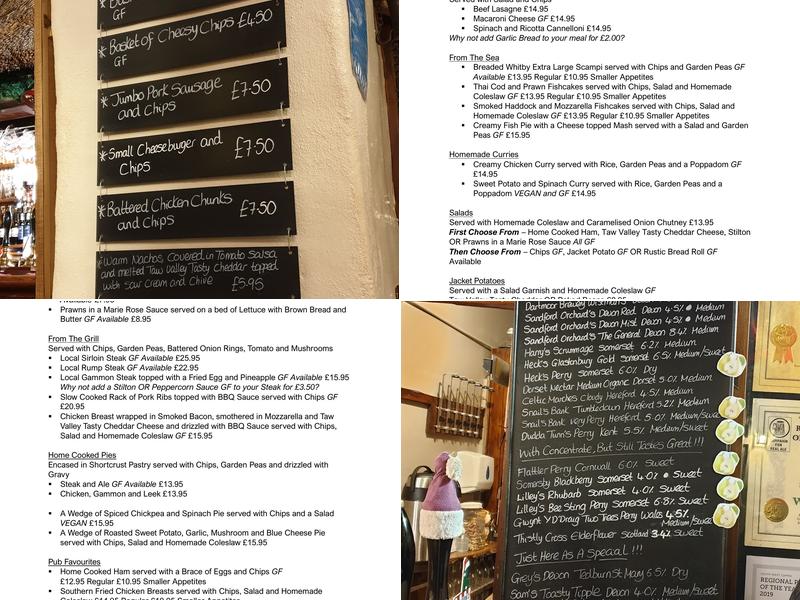 GF
* Basket of Cheesy Chips £4.50
GF
* Jumbo Pork Sausage
and Chips £7.50
* Small Cheeseburger and
Chips £7.50
* Battered Chicken Chunks
and Chips £7.50
* Warm Nachos, Covered in Tomato Salsa
and melted Taw Valley Tasty Cheddar topped
with sour cream and Chive £5.95
Served with Salad and Chips
▪ Beef Lasagne £14.95
▪ Macaroni Cheese GF £14.95
▪ Spinach and Ricotta Cannelloni £14.95
Why not add Garlic Bread to your meal for £2.00?
From The Sea
▪ Breaded Whitby Extra Large Scampi served with Chips and Garden Peas GF
Available £13.95 Regular £10.95 Smaller Appetites
▪ Thai Cod and Prawn Fishcakes served with Chips, Salad and Homemade
Coleslaw GF £13.95 Regular £10.95 Smaller Appetites
▪ Smoked Haddock and Mozzarella Fishcakes served with Chips, Salad and
Homemade Coleslaw GF £13.95 Regular £10.95 Smaller Appetites
▪ Creamy Fish Pie with a Cheese topped Mash served with a Salad and Garden
Peas GF £15.95
Homemade Curries
▪ Creamy Chicken Curry served with Rice, Garden Peas and a Poppadom GF
£14.95
▪ Sweet Potato and Spinach Curry served with Rice, Garden Peas and a
Poppadom VEGAN and GF £14.95
Salads
Served with Homemade Coleslaw and Caramelised Onion Chutney £13.95
First Choose From – Home Cooked Ham, Taw Valley Tasty Cheddar Cheese, Stilton
OR Prawns in a Marie Rose Sauce All GF
Then Choose From – Chips GF, Jacket Potato GF OR Rustic Bread Roll GF
Available
Jacket Potatoes
Served with a Salad Garnish and Homemade Coleslaw GF
▪ Prawns in a Marie Rose Sauce served on a bed of Lettuce with Brown Bread and
Butter GF Available £8.95
From The Grill
Served with Chips, Garden Peas, Battered Onion Rings, Tomato and Mushrooms
▪ Local Sirloin Steak GF Available £25.95
▪ Local Rump Steak GF Available £22.95
▪ Local Gammon Steak topped with a Fried Egg and Pineapple GF Available £15.95
Why not add a Stilton OR Peppercorn Sauce GF to your Steak for £3.50?
▪ Slow Cooked Rack of Pork Ribs topped with BBQ Sauce served with Chips GF
£20.95
▪ Chicken Breast wrapped in Smoked Bacon, smothered in Mozzarella and Taw
Valley Tasty Cheddar Cheese and drizzled with BBQ Sauce served with Chips,
Salad and Homemade Coleslaw GF £15.95
Home Cooked Pies
Encased in Shortcrust Pastry served with Chips, Garden Peas and drizzled with
Gravy
▪ Steak and Ale GF Available £13.95
▪ Chicken, Gammon and Leek £13.95
▪ A Wedge of Spiced Chickpea and Spinach Pie served with Chips and a Salad
VEGAN £15.95
▪ A Wedge of Roasted Sweet Potato, Garlic, Mushroom and Blue Cheese Pie
served with Chips, Salad and Homemade Coleslaw £15.95
Pub Favourites
▪ Home Cooked Ham served with a Brace of Eggs and Chips GF
£12.95 Regular £10.95 Smaller Appetites
▪ Southern Fried Chicken Breasts served with Chips, Salad and Homemade
Sandford Orchard's Devon Red Devon 4.5% Medium
Sandford Orchard's Devon Mist Devon 4.5% Medium
Sandford Orchard's The General Devon 8.4% Medium
Harry's Scrummage Somerset 6.2% Medium
Heck's Glastonbury Gold Somerset 6.5% Medium/Sweet
Heck's Perry Somerset 6.0% Dry
Dorset Nectar Medium Organic Dorset 5.0% Medium
Celtic Marches Cloudy Hereford 4.5% Medium
Snail's Bank Tumbledown Hereford 5.2% Medium
Snail's Bank Very Perry Hereford 5.0% Medium/Sweet
Dudda Tun's Perry Kent 5.5% Medium/Sweet
With Concentrate, But Still Tastes Great!!!
Flattler Perry Cornwall 6.0% Sweet
Somersby Blackberry Somerset 4.0% Sweet
Lilley's Rhubarb Somerset 4.0% Sweet
Lilley's Bee Sting Perry Somerset 6.8% Sweet
Gwynt Y Ddraig Two Trees Perry Wales 4.5%
Medium/Sweet
Thistly Cross Elderflower Scotland 3.4% Sweet
Just Here As A Special!!!
Grey's Devon Tedburn St Mary 6.5% Dry
Sam's Toasty Tipple Devon 4.0% Medium
REGIONAL
OF THE YEAR
2019